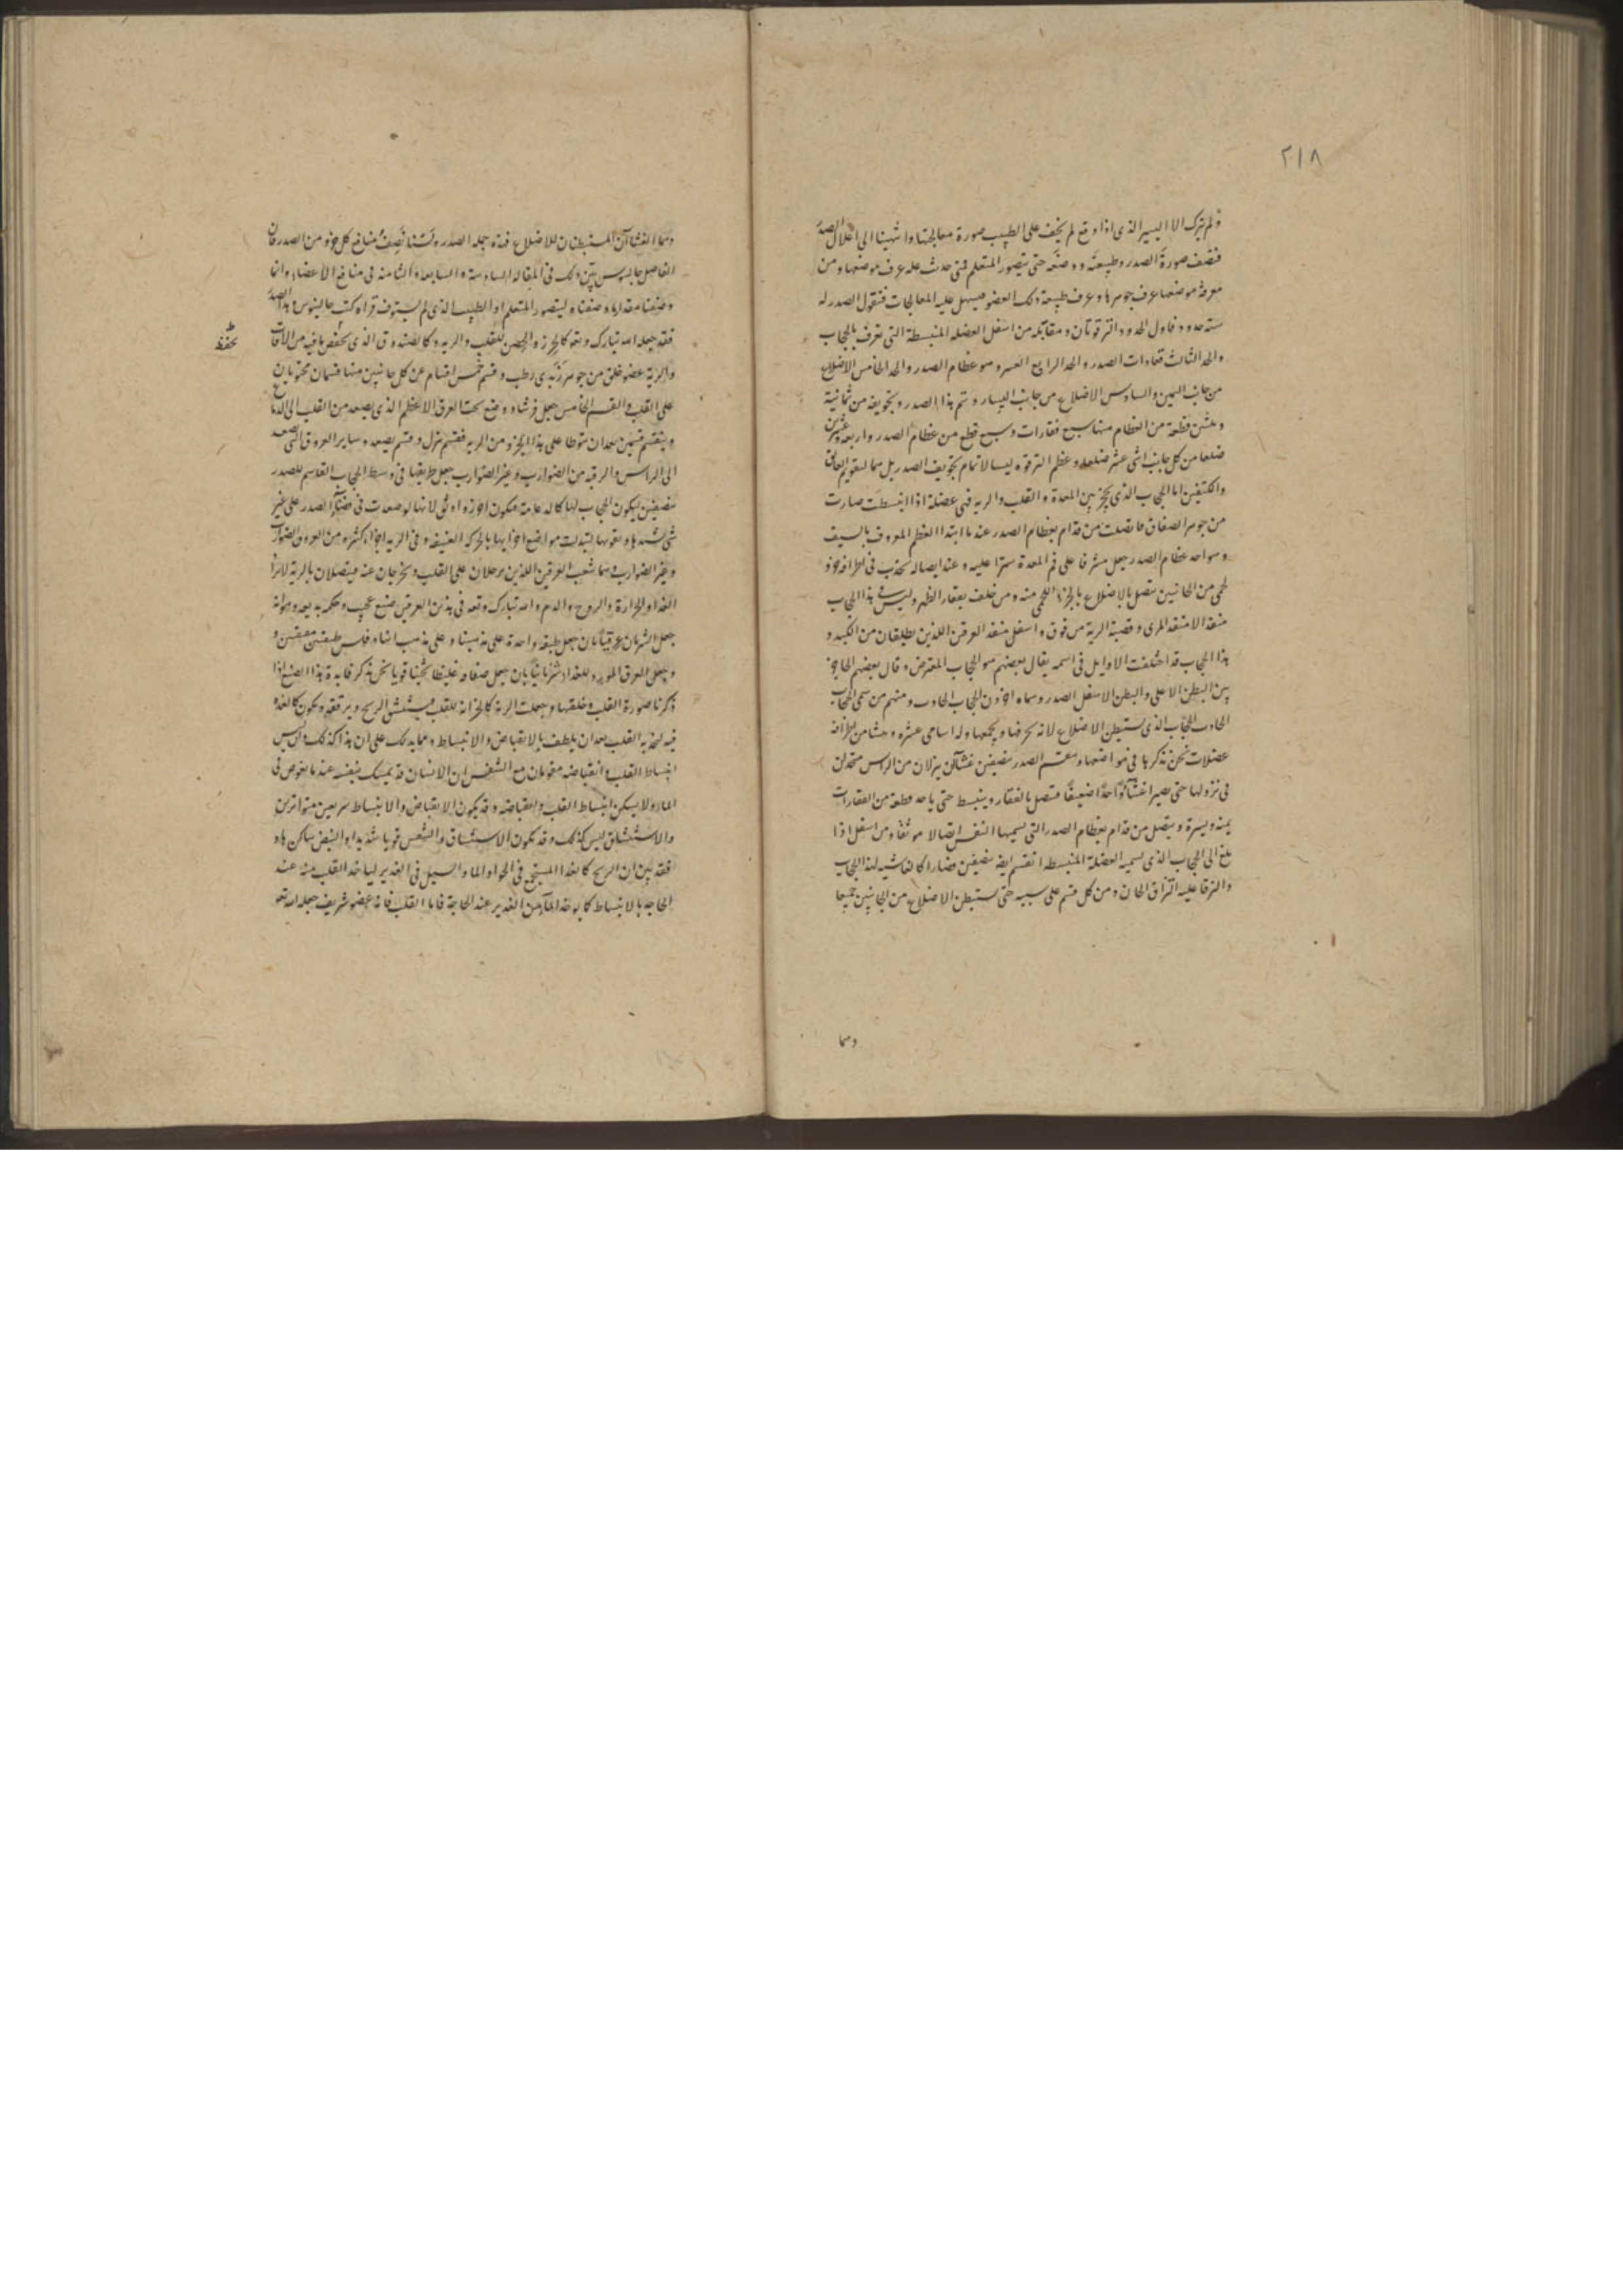 ٢١٨
ولم نترك الا اليسير الذى اذا وقع لم يخف على الطبيب صورة معالجتها وانتهينا الى اعلال الصدر
فنصف صورة الصدر وطبيعته ووضعه حتى يتصور المتعلم فمتى حدث عله عرف موضعها ومن
معرفة موضعها عرف جوهرها وعرف طبيعة ذلك العضو فيسهل عليه المعالجات فنقول الصدر له
ستة حدود فاول الحدود الترقوتان ومقابله من اسفل العضله المنبسطة التى تعرف بالحجاب
والحد الثالث فقارات الصدر والحد الرابع وهو عظام الصدر والحد الخامس الاضلاع
من جانب اليمين والسادس الاضلاع من جانب اليسار وتم هذا الصدر وتجويفه من ثمانية
وثلثين قطعة من العظام منها سبع فقارات وسبع قطع من عظام الصدر واربعه وعشرين
ضلعا من كل جانب اثنى عشر ضلعا وعظم الترقوه ليسا لاتمام تجويف الصدر بل هما لتقويم العاتق
والكتفين اما الحجاب الذى يحجز بين المعدة والقلب والريه فهى عضلة اذا انبسطت صارت
من جوهر الصفاق فاتصلت من قدام بعظام الصدر عند ما ابتدا العظم المعروف بالسيف
وهو احد عظام الصدر جعل مشرفا على فم المعدة سترا عليه وعند ايصاله يحدث فى اطرافه جزو
لحمى من الجانبين متصل بالاضلاع بالجزء اللحمى منه ومن خلف بفقار الظهر وليس فى هذا الحجاب
منفذ الا منفذ المرى وقصبة الرية من فوق واسفل منفذ العرقين اللذين يطلقان من الكبد و
هذا الحجاب قد اختلفت الاوايل فى اسمه يقال بعضهم هو الحجاب المعترض وقال بعضهم الحاجز
بين البطن الاعلى والبطن الاسفل الصدر وسماه اخرون الحجاب الحادب ومنهم من سمى الحجاب
الحادب الحجاب الذى يستبطن الاضلاع لانه يحرفها ويجمعها وله اسامى عشره
عضلات نحن نذكرها فى مواضعها ويقسم الصدر بنصفين غشآآن ينزلان من الراس منحدران
فى نزولها حتى يصيرا غشآءً واحدًا ضعيفًا متصل بالفقار وينبسط حتى ياخد قطعة من الفقارات
يمنه ويسرة ويتصل من قدام بعظام الصدر التى يسميها اتصالا موثقا ومن اسفل اذا
بلغ الى الحجاب الذى نسميه العضلة المنبسطه انقسم ايضا بنصفين فصارا كالغاشيه لهذا الحجاب
والتزقا عليه التزاق ومن كل قسم على سببه حتى يستبطن الاضلاع من الجانبين جميعا
وهما
وهما الغشاآن المستبطنان للاضلاع فهذه جملة الصدر ولسنا نصف منافع كل جزو من الصدر فان
الفاضل جالينوس بيّن ذلك فى المقاله السادسة والسابعه والثامنه فى منافع الاعضاء وانما
وصفنا مقدار ما وصفناه ليتصور المتعلم او الطبيب الذى لم يستوف قراه كتب جالينوس وهذا الصدر
فقد جعله الله تبارك وتعو كالحرز والحصن للقلب والريه وكالصندوق الذى يحفظ ما فيه من الافات
يحفظ
والرية عضو خلق من جوهر زبدى رطب وقسم خمس اقسام من كل جانبين منها قسمان محتويان
على القلب والقسم الخامس جعل فرشا ووضع تحت العرق الاعظم الذى يصعد من القلب الى الدماغ
وينقسم قسمين بعد ان يتوطا على هذا الجزو من الريه فقسم ينزل وقسم يصعد وساير العروق التى تصعد
الى الراس والرقبه من الضوارب وغير الضوارب جعل طريقها فى وسط الحجاب القاسم للصدر
بنصفين ليكون الحجاب لها كالدعامة فيكون احرز واوثق لانها لو صعدت فى فضاء الصدر على غير
شى يشدها ويقويها لتبدلت مواضع اجزايها بالحركه العنيفه وفى الريه اجزاء كثيره من العروق الضوارب
وغير الضوارب وهما شعب العرقين اللذين يدخلان على القلب ويخرجان عنه فيتصلان بالرية
الغذاء والحرارة والروح والدم والله تبارك وتعه فى هذين العرقين صنع عجيب وحكمه بديعه وهو انه
جعل الشريان عرقيا بان جعل طبقه واحدة
وجعل العرق المورد للغذاء شريانيا بان جعل صفاقه غليظا ثخينا قويا نحن نذكر فايدة هذا الصنع اذا
ذكرنا صورة القلب وخلقتها وجعلت الرية كالخزانة للقلب يستنشق الريح ويرققه ويكون كالغذو
فيه لتغذيه القلب بعد ان يلطف بالانقباض والانبساط ومما يدلك على ان هذا كذلك وليس
انبساط القلب وانقباضه مقومان مع التنفس ان الانسان قد يمسك بنفسه عند ما يغوص فى
الماء ولا يسكن انبساط القلب وانقباضه وقد يكون الانقباض والانبساط سريعين متواترين
والاستنشاق ليس كذلك وقد يكون الاستنشاق والتنفس قويا شديدا والنبض ساكن هاد
فقد بيّن ان الريح كالغذاء المستجمع فى الهواء والماء والسيل فى الغدير لياخد القلب منه عند
الحاجة بالانبساط كما يوخذ الماء من الغدير عند الحاجة فاما القلب فانه عضو شريف جعله الله تعو